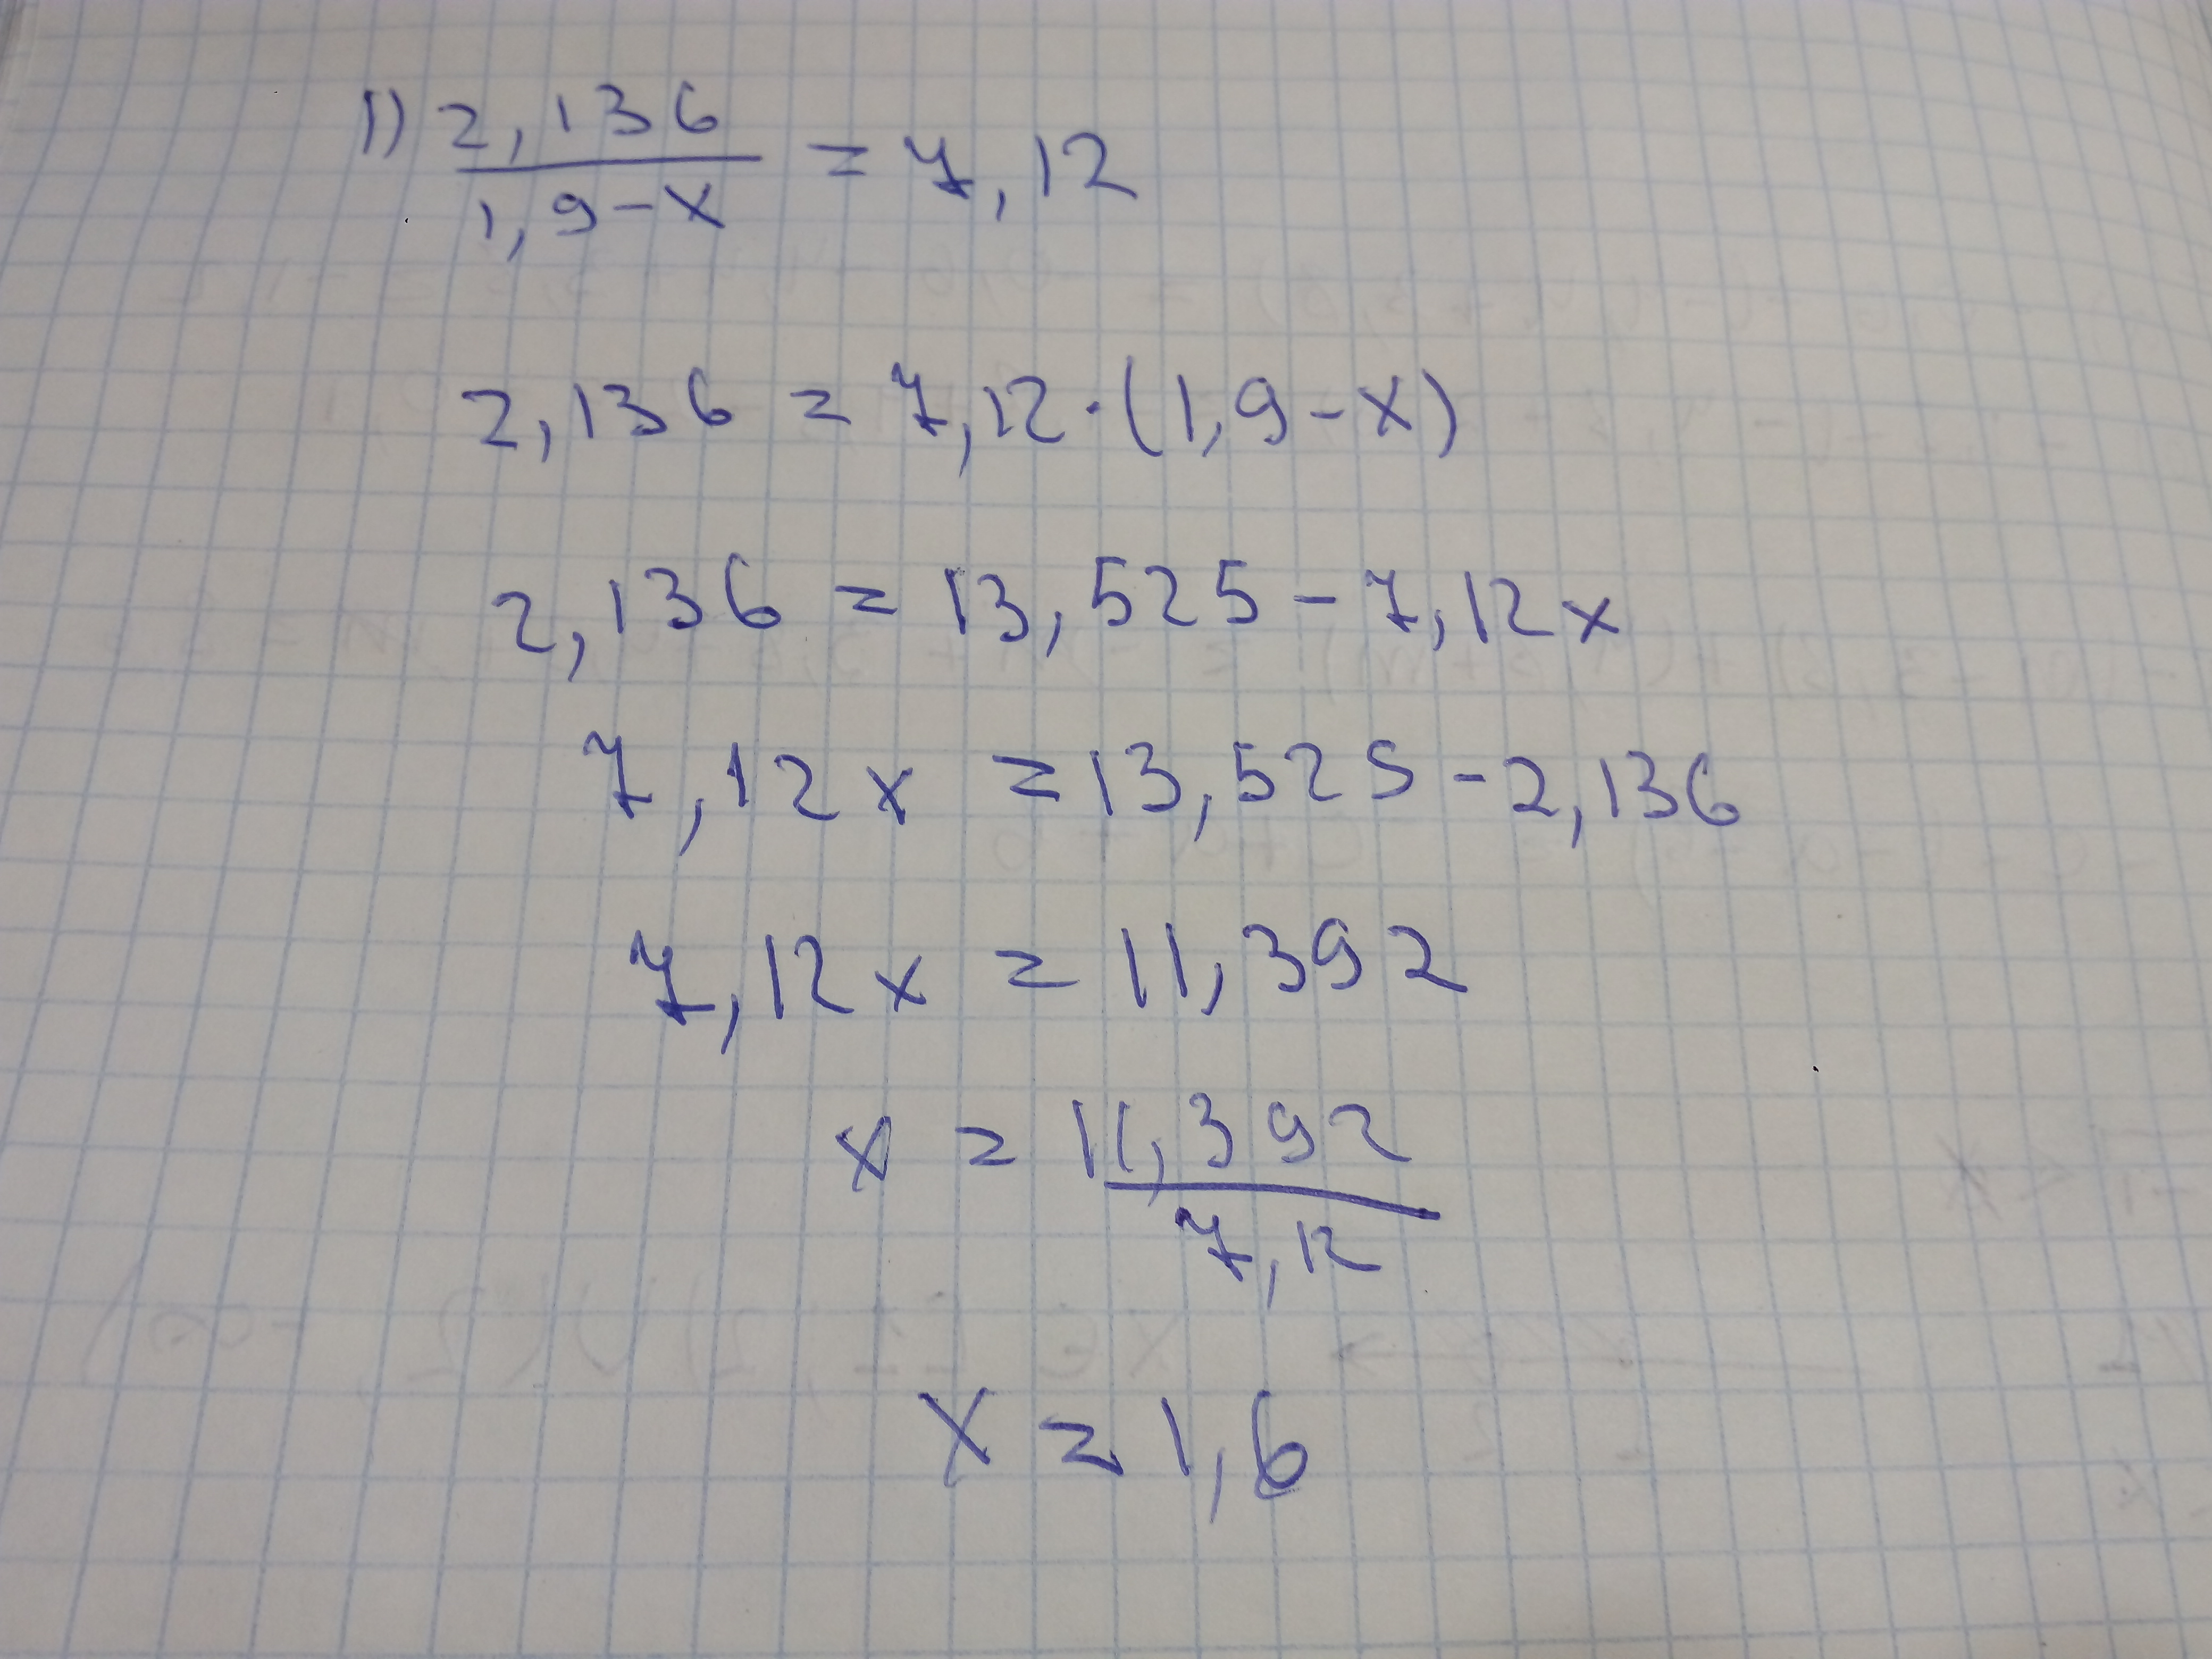 1) 2,136 / 1,9-x = 7,12
2,136 = 7,12·(1,9-x)
2,136 = 13,525-7,12x
7,12x = 13,525-2,136
7,12x = 11,392
x = 11,392 / 7,12
x = 1,6